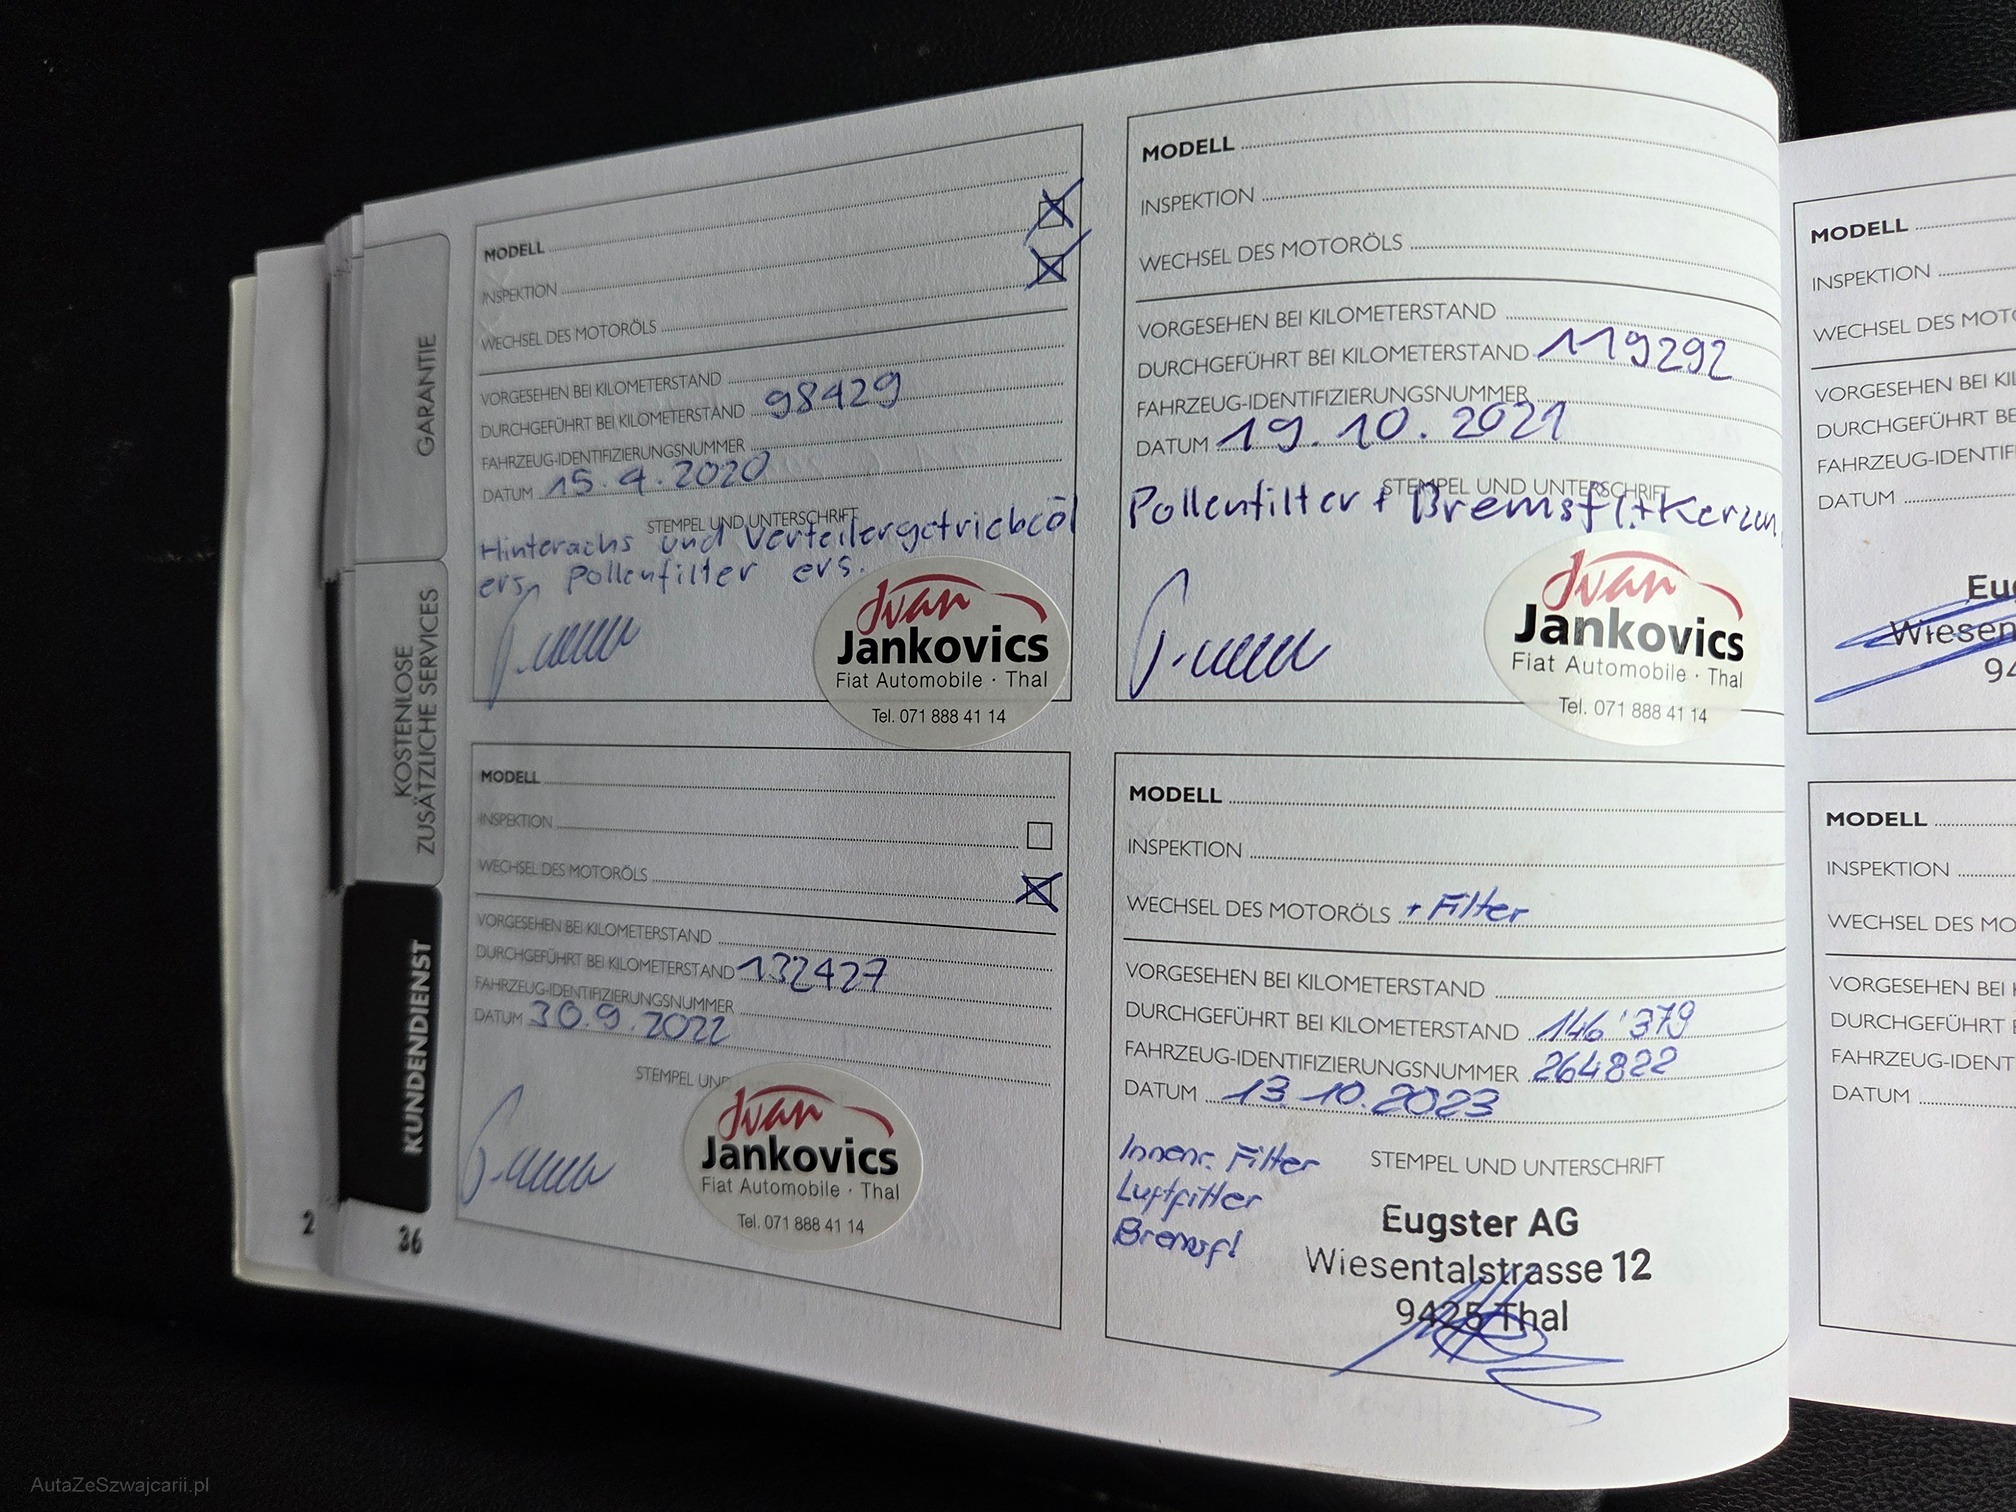 GARANTIE
KOSTENLOSE
ZUSÄTZLICHE SERVICES
KUNDENDIENST
2
36
MODELL
INSPEKTION
WECHSEL DES MOTORÖLS
VORGESEHEN BEI KILOMETERSTAND
DURCHGEFÜHRT BEI KILOMETERSTAND 98429
FAHRZEUG-IDENTIFIZIERUNGSNUMMER
DATUM 15.4.2020
STEMPEL UND UNTERSCHRIFT
Hinterachs und Verteilergetriebeöl
ers, Pollenfilter ers.
Ivan
Jankovics
Fiat Automobile · Thal
Tel. 071 888 41 14
MODELL
INSPEKTION
WECHSEL DES MOTORÖLS
VORGESEHEN BEI KILOMETERSTAND
DURCHGEFÜHRT BEI KILOMETERSTAND 119292
FAHRZEUG-IDENTIFIZIERUNGSNUMMER
DATUM 19.10.2021
STEMPEL UND UNTERSCHRIFT
Pollenfilter + Bremsfl.+Kerzen
Ivan
Jankovics
Fiat Automobile · Thal
Tel. 071 888 41 14
MODELL
INSPEKTION
WECHSEL DES MOTORÖLS
VORGESEHEN BEI KILOMETERSTAND
DURCHGEFÜHRT BEI KILOMETERSTAND 132427
FAHRZEUG-IDENTIFIZIERUNGSNUMMER
DATUM 30.9.2022
STEMPEL UND
Ivan
Jankovics
Fiat Automobile · Thal
Tel. 071 888 41 14
MODELL
INSPEKTION
WECHSEL DES MOTORÖLS + Filter
VORGESEHEN BEI KILOMETERSTAND
DURCHGEFÜHRT BEI KILOMETERSTAND 146'379
FAHRZEUG-IDENTIFIZIERUNGSNUMMER 264822
DATUM 13.10.2023
Innenr. Filter
Luftfilter
Bremsfl
STEMPEL UND UNTERSCHRIFT
Eugster AG
Wiesentalstrasse 12
9425 Thal
MODELL
INSPEKTION
WECHSEL DES MOT
VORGESEHEN BEI KI
DURCHGEFÜHRT BE
FAHRZEUG-IDENTIF
DATUM
Eu
Wiesen
94
MODELL
INSPEKTION
WECHSEL DES MO
VORGESEHEN BEI
DURCHGEFÜHRT
FAHRZEUG-IDENT
DATUM
AutaZeSzwajcarii.pl